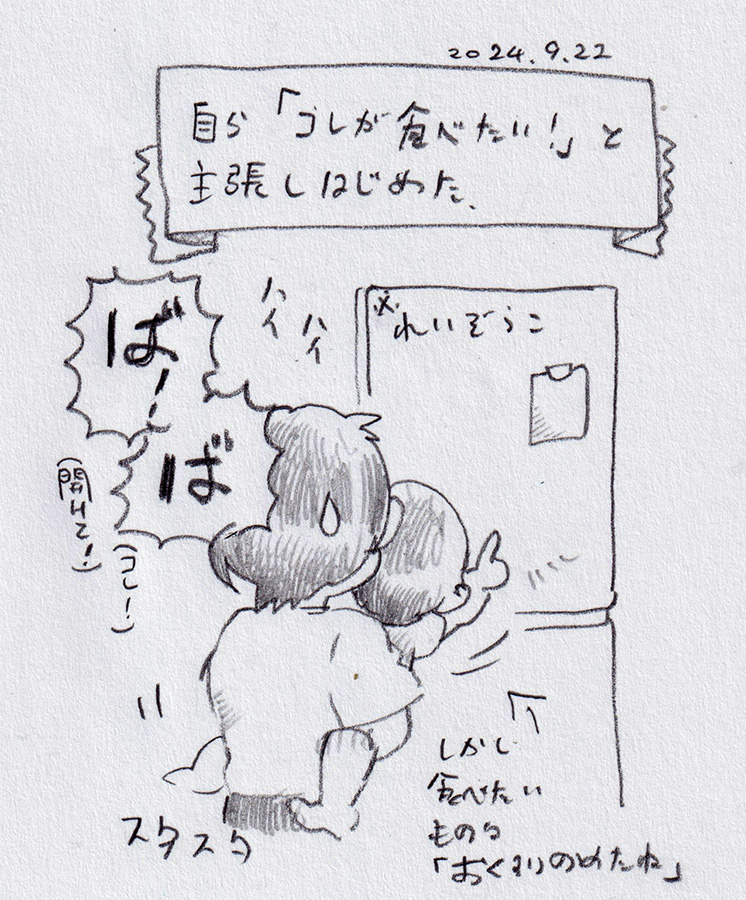 2024.9.22
自ら「コレが食べたい!」と
主張しはじめた、
ば!
ば
ハイ
ハイ
※れいぞうこ
(開けて!)
(コレ!)
スタスタ
しかし
食べたい
ものは